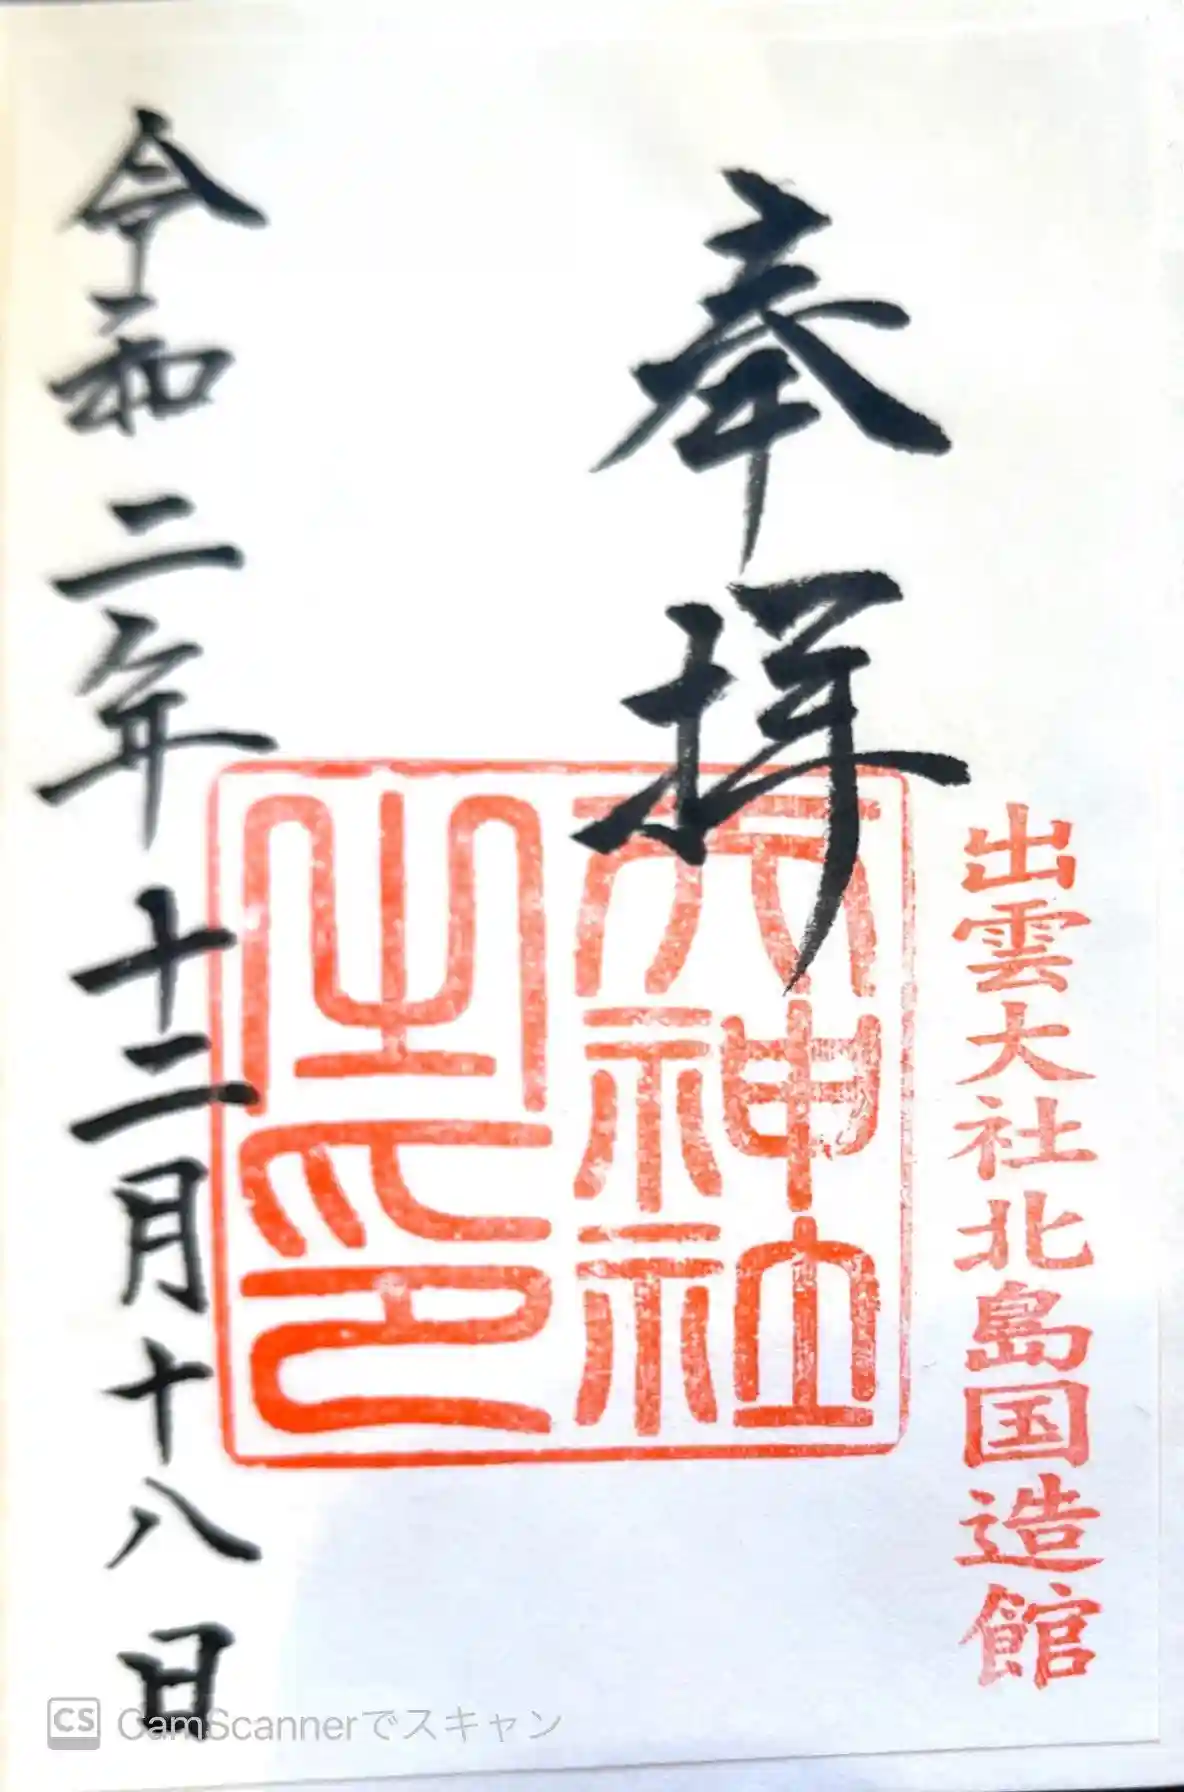 出雲大社北島国造館
奉拝
天神社
之印
令和二年十二月十八日
CS CamScannerでスキャン